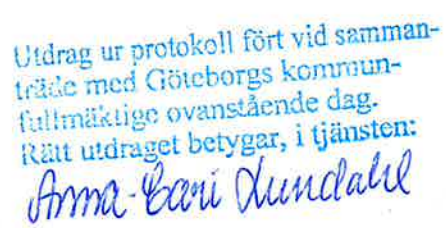 Utdrag ur protokoll fört vid samman-
träde med Göteborgs kommun-
fullmäktige ovanstående dag.
Rätt utdraget betygar, i tjänsten:
Anna-Cari Lundahl